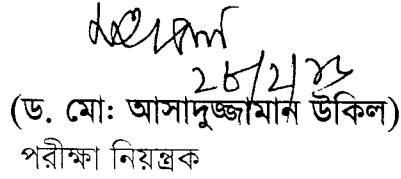 ২৮/২/২৩
(ড. মো: আসাদুজ্জামান উকিল)
পরীক্ষা নিয়ন্ত্রক